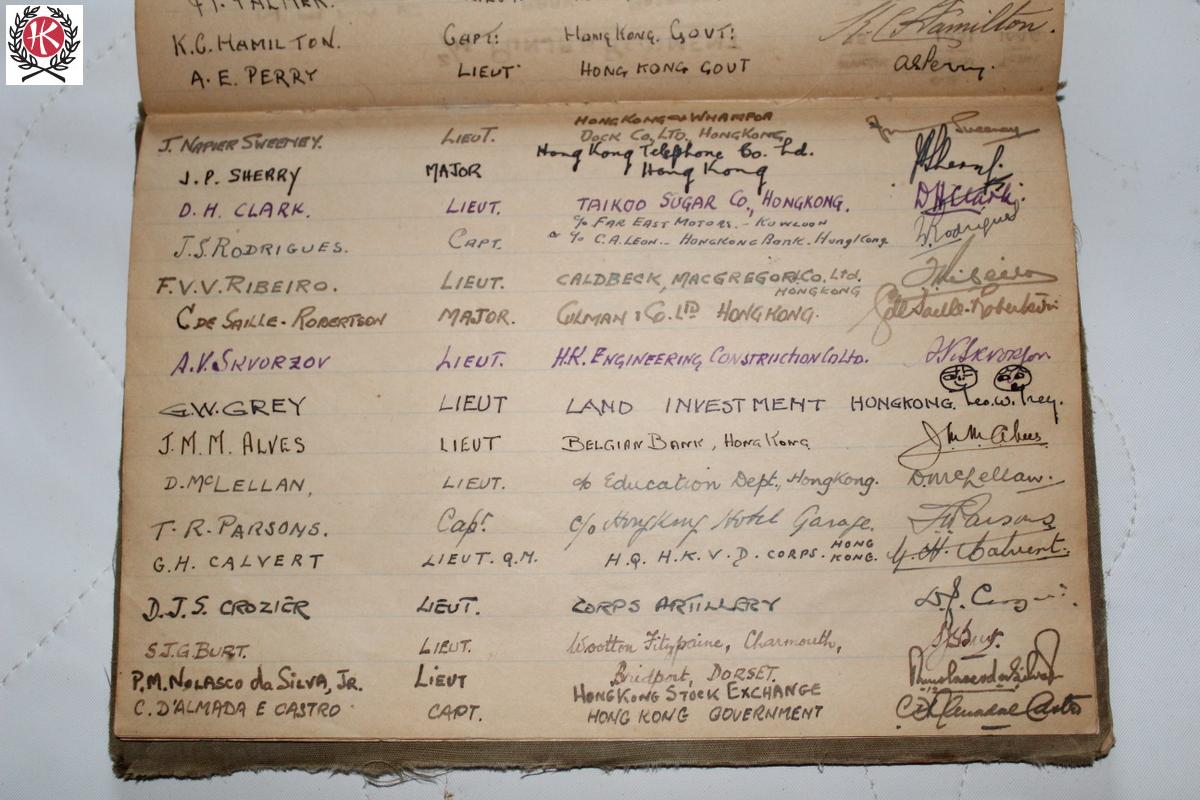 HK
K.C. HAMILTON. CAPT: HONG KONG. GOVT: K.C. Hamilton.
A. E. PERRY LIEUT HONG KONG GOVT AEPerry.
J. NAPIER SWEENEY. LIEUT. HONGKONG & WHAMPOA DOCK CO, LTD. HONGKONG Sweeney
J. P. SHERRY MAJOR Hong Kong Telephone Co. Ltd. Hong Kong JPSherry.
D. H. CLARK. LIEUT. TAIKOO SUGAR CO., HONGKONG. DHClark.
J.S. RODRIGUES. CAPT. c/o FAR EAST MOTORS. - KOWLOON
& c/o C.A. LEON.. HONGKONG BANK. HongKong Rodrigues
F.V.V. RIBEIRO. LIEUT. CALDBECK, MACGREGOR & CO. Ltd. HONGKONG Ribeiro
C DE SAILLE. ROBERTSON MAJOR. COLMAN & CO. LTD HONGKONG. C de Saille-Robertson
A.V. SKVORZOV LIEUT. H.K. ENGINEERING CONSTRUCTION CO LTD. A.V. Skvorzov.
G.W. GREY LIEUT LAND INVESTMENT HONGKONG. Geo. W. Grey.
J.M.M. ALVES LIEUT BELGIAN BANK, HONG KONG JMM Alves
D. McLELLAN, LIEUT. c/o Education Dept., Hongkong. DMcLellan.
T. R. PARSONS. Capt. c/o HongKong Hotel Garage. TRParsons
G.H. CALVERT LIEUT. Q.M. H.Q. H.K.V.D. CORPS. HONG KONG. G. H. Calvert.
D.J.S. CROZIER LIEUT. CORPS ARTILLERY
S.J.G. BURT. LIEUT. Wootton Fitzpaine, Charmouth, Burt.
Bridport, DORSET.
P.M. NOLASCO da SILVA, JR. LIEUT HONGKONG STOCK EXCHANGE
C. D'ALMADA E CASTRO CAPT. HONG KONG GOVERNMENT Castro